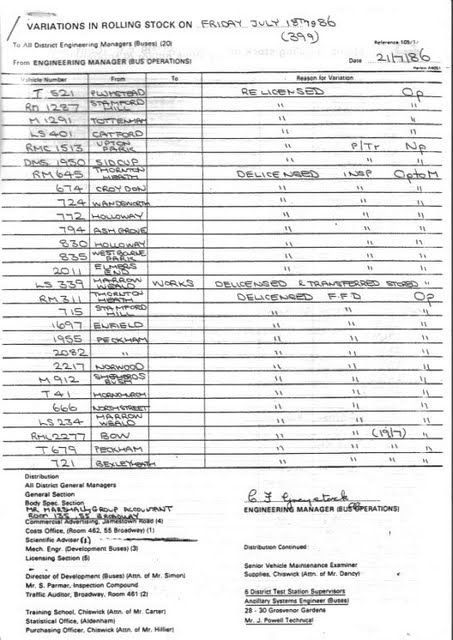 VARIATIONS IN ROLLING STOCK ON FRIDAY JULY 18TH 86
(399)
To All District Engineering Managers (Buses) (20)
Reference 105/1
From ENGINEERING MANAGER (BUS OPERATIONS)
Date 21/7/86
Vehicle Number From To Reason for Variation
T 521 PLUMSTEAD RELICENSED Op
RM 1287 STAMFORD HILL " "
M 1291 TOTTENHAM " "
LS 401 CATFORD " "
RMC 1513 UPTON PARK " P/Tr Np
DMS 1950 SIDCUP " " "
RM 645 THORNTON HEATH DELICENSED INSP OptoM
674 CROYDON " " "
724 WANDSWORTH " " "
772 HOLLOWAY " " "
794 ASH GROVE " " "
830 HOLLOWAY " " "
835 WESTBORNE PARK " " "
2011 ELMERS END " " "
LS 339 HARROW WEALD WORKS DELICENSED & TRANSFERRED STORED "
RM 311 THORNTON HEATH DELICENSED F.F.D Op
715 STAMFORD HILL " " "
1697 ENFIELD " " "
1955 PECKHAM " " "
2082 " " " "
2217 NORWOOD " " "
M 912 SHEPHERDS BUSH " " "
T 41 HORNCHURCH " " "
666 NORTH STREET " " "
LS 234 HARROW WEALD " " "
RML 2277 BOW " " (19/7) "
T 679 PECKHAM " " "
721 BEXLEYHEATH " " "
Distribution
All District General Managers
General Section
Body Spec. Section
MR. MARSHALL, GROUP ACCOUNTANT
ROOM 135, 55 BROADWAY
Commercial Advertising, Jamestown Road (4)
Costs Office, (Room 462, 55 Broadway) (1)
Scientific Adviser
Mech. Engr. (Development Buses) (3)
Licensing Section (5)
Director of Development (Buses) (Attn. of Mr. Simon)
Mr. S. Parmar, Inspection Compound
Traffic Auditor, Broadway, Room 461 (2)
Training School, Chiswick (Attn. of Mr. Carter)
Statistical Office, (Aldenham)
Purchasing Officer, Chiswick (Attn. of Mr. Hillier)
C F Greystock
ENGINEERING MANAGER (BUS OPERATIONS)
Distribution Continued:
Senior Vehicle Maintenance Examiner
Supplies, Chiswick (Attn. of Mr. Dancy)
6 District Test Station Supervisors
Ancillary Systems Engineer (Buses)
28 - 30 Grosvenor Gardens
Mr. J. Powell Technical